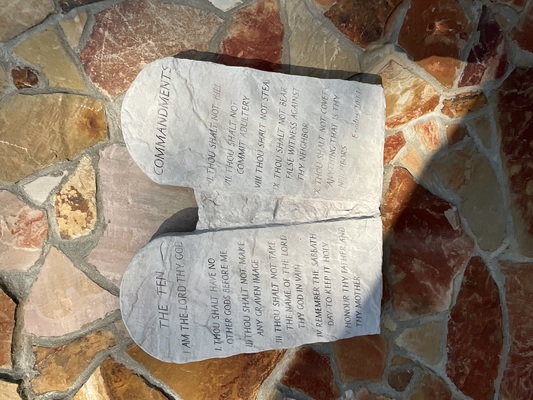 THE TEN
I AM THE LORD THY GOD
I. THOU SHALT HAVE NO
OTHER GODS BEFORE ME
II THOU SHALT NOT MAKE
ANY GRAVEN IMAGE
III THOU SHALT NOT TAKE
THE NAME OF THE LORD
THY GOD IN VAIN
IV REMEMBER THE SABBATH
DAY TO KEEP IT HOLY
HONOUR THY FATHER AND
THY MOTHER
COMMANDMENTS
THOU SHALT NOT KILL
THOU SHALT NOT
COMMIT ADULTERY
VIII THOU SHALT NOT STEAL
IX. THOU SHALT NOT BEAR
FALSE WITNESS AGAINST
THY NEIGHBOR
X. THOU SHALT NOT COVET
ANYTHING THAT IS THY